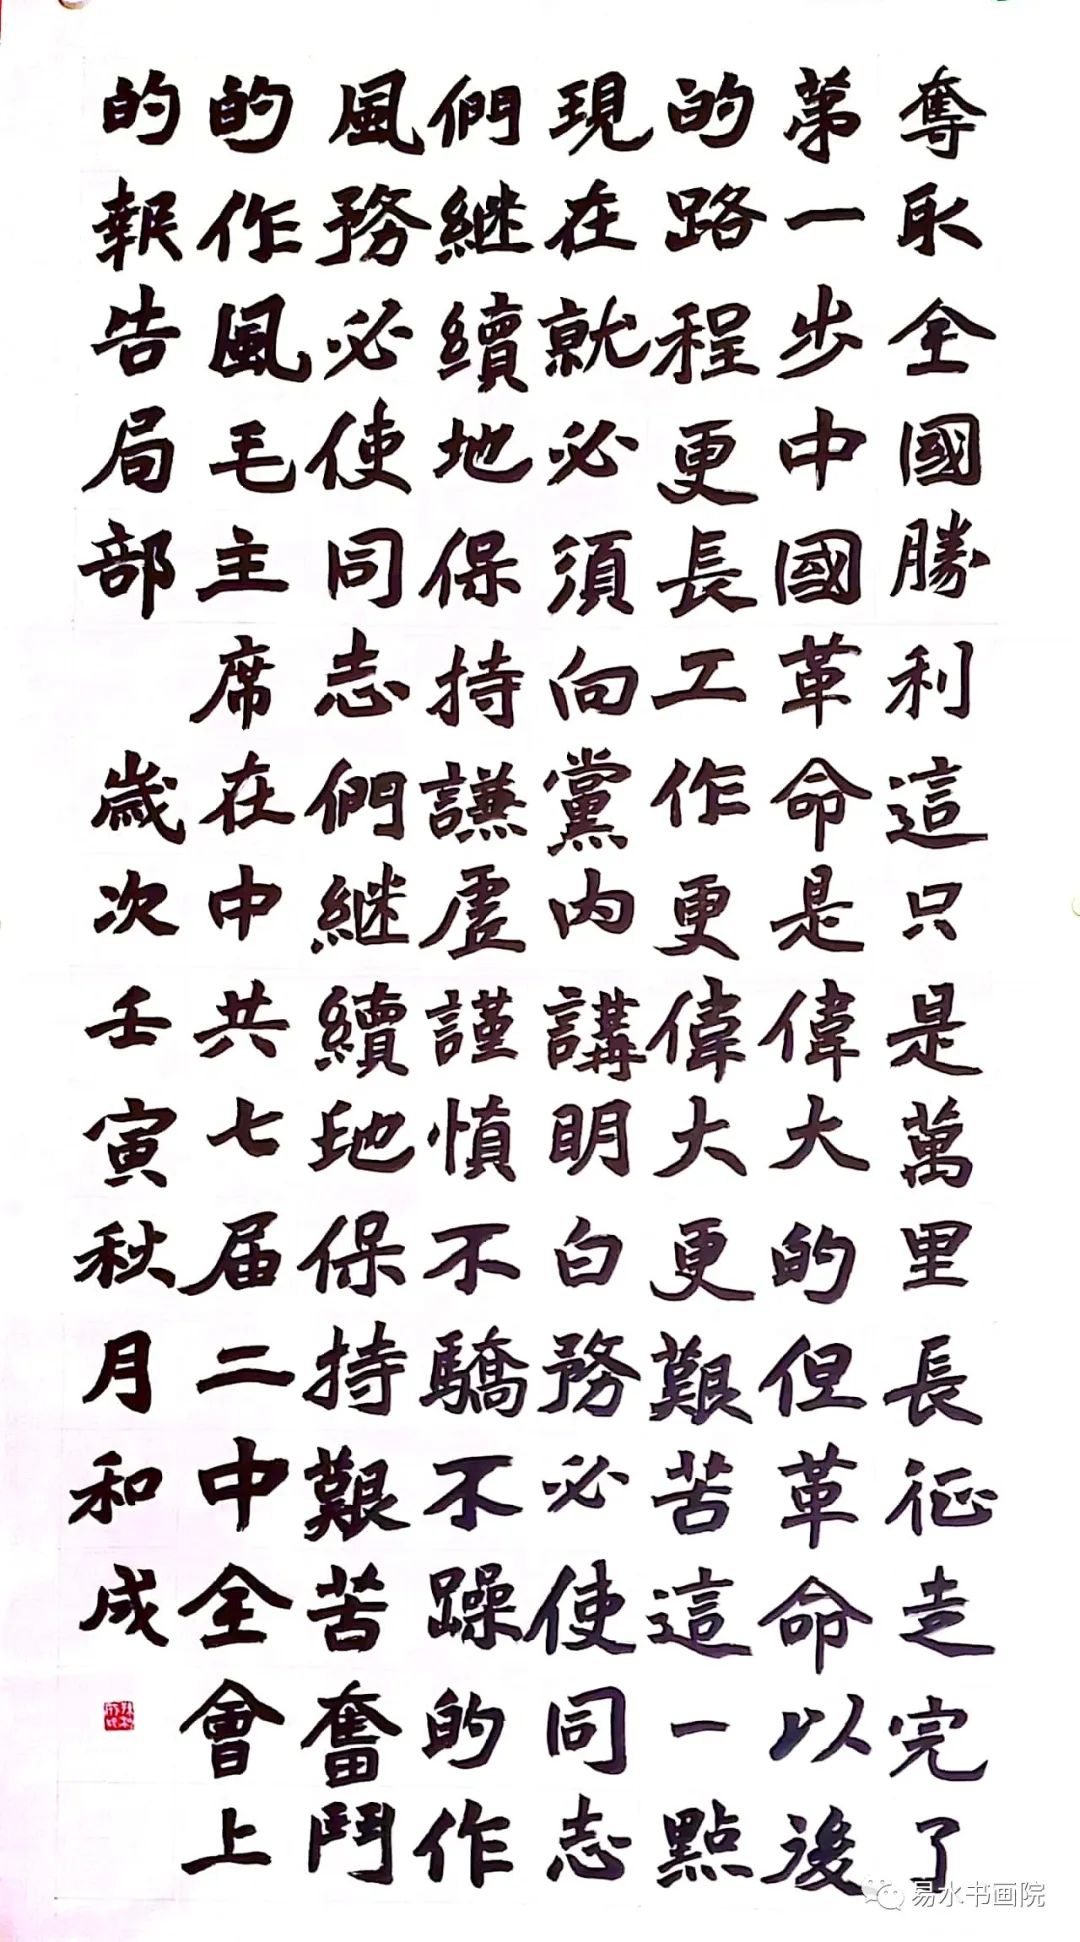 奪取全國勝利這只是萬里長征走完了
第一步中國革命是偉大的但革命以後
的路程更長工作更偉大更艱苦這一點
現在就必須向黨内講明白務必使同志
們継續地保持謙虛謹慎不驕不躁的作
風務必使同志們継續地保持艱苦奮鬥
的作風毛主席在中共七届二中全會上
的報告局部 歲次壬寅秋月和成
易水书画院